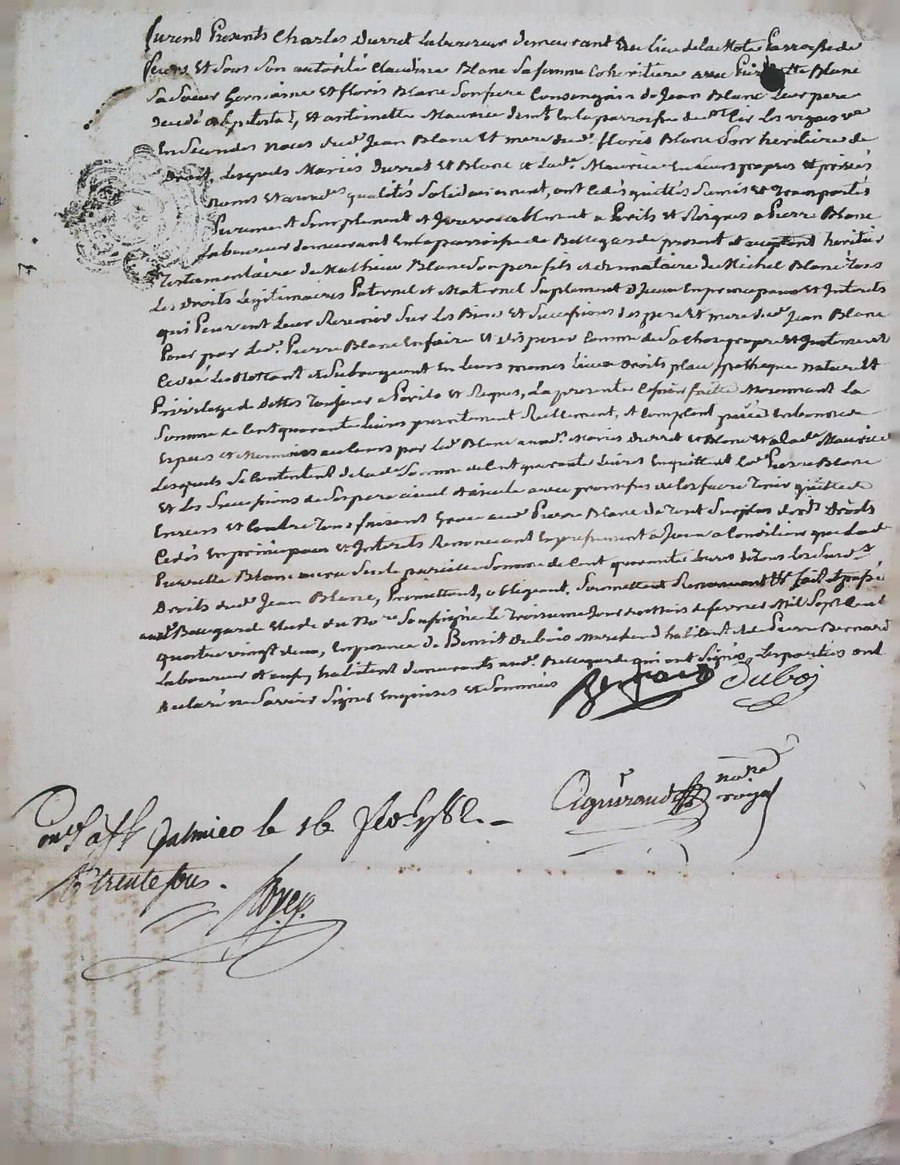 furent Presents Charles Durret Laboureur demeurant au lieu de la Mote Parroisse de
et Sous Son autorité Claudine Blanc Sa femme Coheritiere avec Blanc
Sa Soeur Germaine et floris Blanc Son frere Consanguin de Jean Blanc Leur pere
decedé abintestat, et antoinette Maurice en la parroisse de les vignes
En Secondes noces dud. Jean Blanc Et mere dud. floris Blanc Son heritiere de
Droit, Lesquels Mariés Durret et Blanc et lad. Maurice En Leurs propres et privés
noms et qualités Solidairement, ont cedés quittés Remis et Transportés
Purement Simplement et Irrevocablement a Perils et Risques a Pierre Blanc
Laboureur demeurant En la parroisse de Bellegarde present et acceptant heritier
Testamentaire de Mathieu Blanc Son pere fils et donnataire de Michel Blanc Tous
Les Droits Legitimaires Paternel et Maternel Suplement D'Iceux En principaux et Interets
qui Peuvent Leur Revenir Sur Les Biens et Successions des pere et mere dud. Jean Blanc
Pour par led. Pierre Blanc En faire et disposer Comme de Sa chose propre et Justement
Cedée Le Mettant et Subrogeant En Leurs memes Lieux Droits place hypotheque nature et
Privilege de dettes Toujours a Perils et Risques, La presente Cession faitte Moyennant La
Somme de Cent quarante Livres presentement Reellement, et Comptant payée En bonnes
Especes et par led. Blanc auxd. Mariés Durret et Blanc et a lad. Maurice
Lesquels Se Contentent de lad. Somme de Cent quarante Livres En quittent led. Pierre Blanc
Et Les Successions de Ses pere aieul et aieule avec promesses de Les faire Tenir quitte
Envers et Contre Tous faisant Grace aud. Pierre Blanc de Tout Surplus desd. Droits
Cedés En principaux et Interets Renonceant Expressement a Iceux a Condition que lad.
Pierrette Blanc aura Seule pareille Somme de Cent quarante Livres Tous les Surd.
Droits dud. Jean Blanc, Promettant, obligeant, Soumettant Renonceant &c fait et passé
aud. Bellegarde Etude du No.re Soussigné Le Troisieme Jour du Mois de fevrier Mil Sept Cent
quatre vingt deux, En presence de Benoit Dubois Marchand habitant et de Pierre Bernard
Laboureur et aussy habitant demeurants aud. Bellegarde qui ont Signés, Les parties ont
declaré ne Savoir Signer Enquises et Sommées
Bernard Dubois
no.re
royal
le 16 1782
Rç trente Sous.